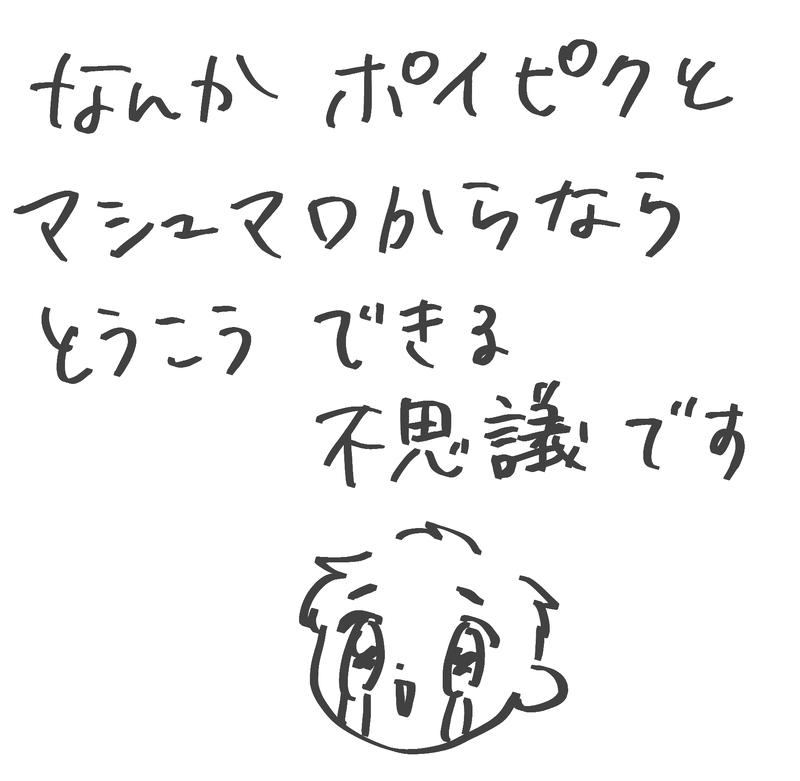 なんか ポイピクと
マシュマロからなら
とうこう できる
不思議です